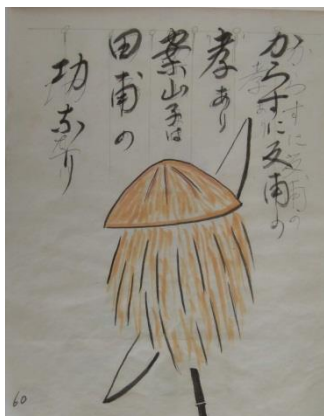 からすに反甫の
孝あり
案山子は
田甫の
功なり
60